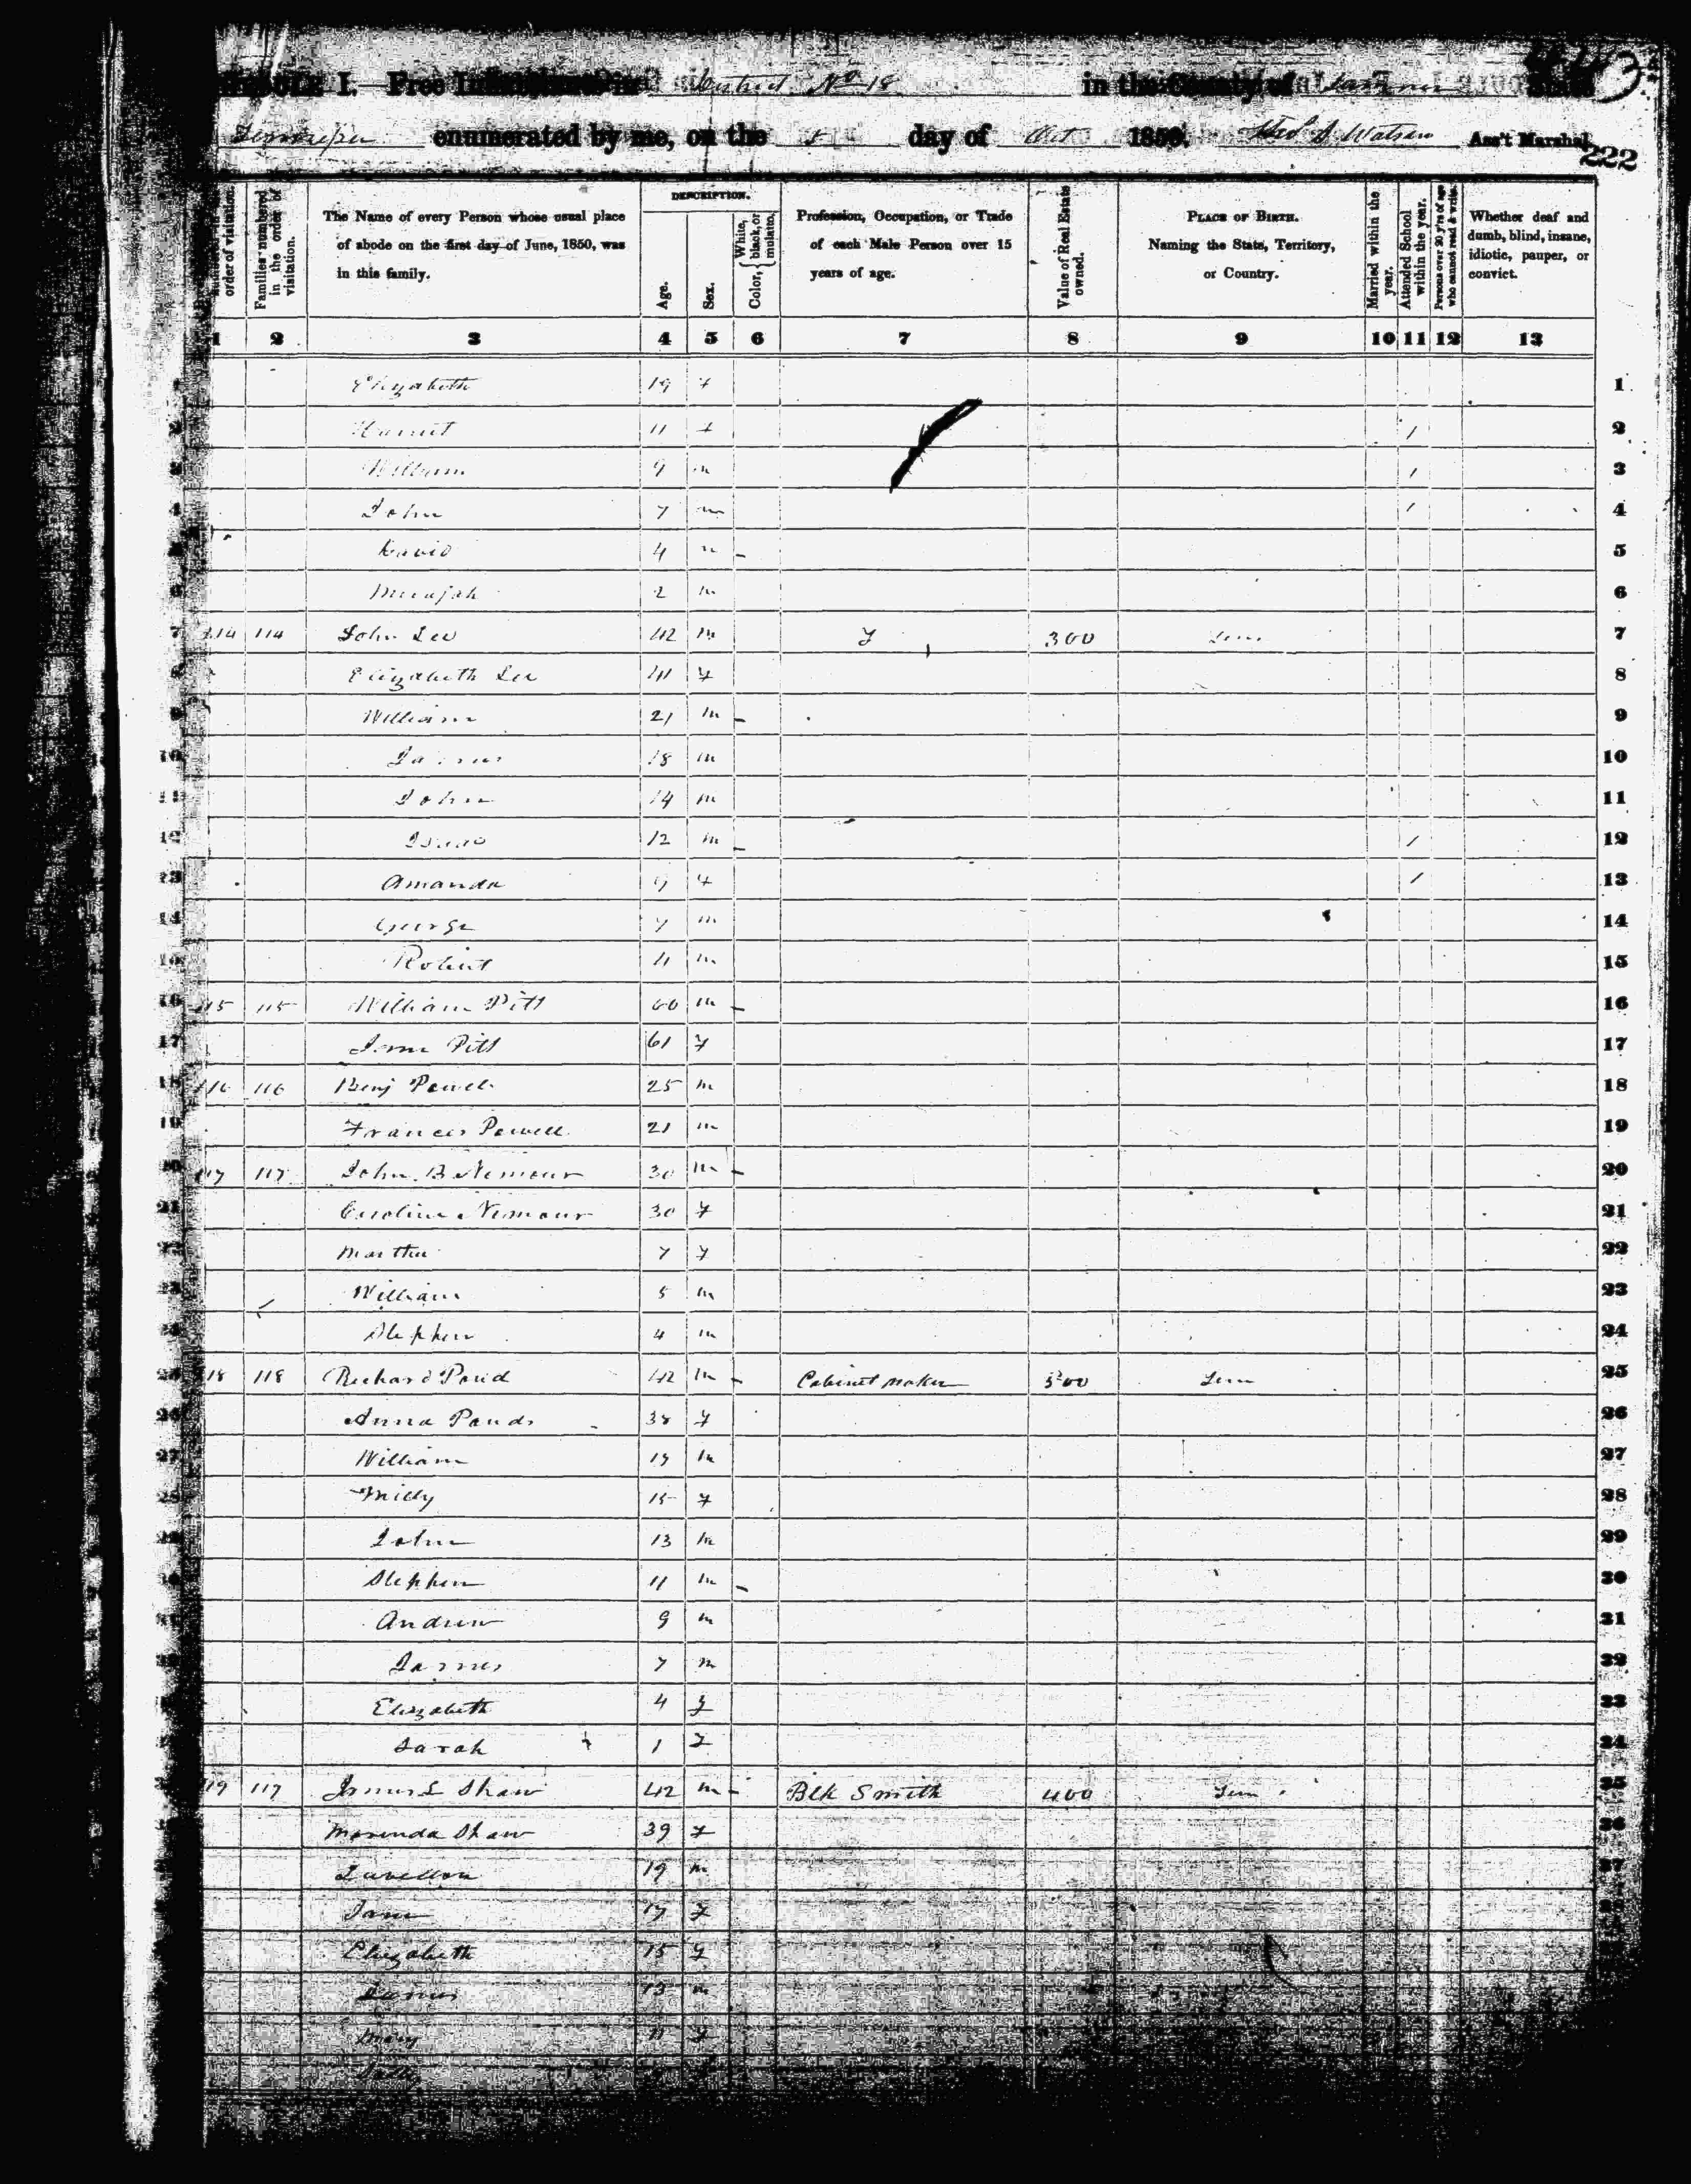 I. Free District No 18 in the County of
enumerated by me, on the 5 day of Oct 1850. Watson Ass't Marshal.
222
order of visitation.
Families numbered in the order of visitation.
The Name of every Person whose usual place of abode on the first day of June, 1850, was in this family.
DESCRIPTION.
Age.
Sex.
Color, { White, black, or mulatto.
Profession, Occupation, or Trade of each Male Person over 15 years of age.
Value of Real Estate owned.
PLACE OF BIRTH. Naming the State, Territory, or Country.
Married within the year.
Attended School within the year.
Persons over 20 y'rs of age who cannot read & write.
Whether deaf and dumb, blind, insane, idiotic, pauper, or convict.
1 2 3 4 5 6 7 8 9 10 11 12 13
1 Elizabeth 19 f 1
2 Harriet 11 f / 2
3 William 9 m / 3
4 John 7 m / 4
David 4 m 5
6 Micajah 2 m 6
7 114 114 John Lee 42 m F 300 Ten 7
8 Elizabeth Lee 41 f 8
9 William 21 m 9
10 James 18 m 10
11 John 14 m 11
12 12 m / 12
13 Amanda 9 f / 13
14 George 7 m 14
15 Robert 4 m 15
16 115 115 William Pitt 60 m 16
17 Pitt 61 f 17
18 116 116 Benj Powell 25 m 18
19 Francis Powell 21 m 19
20 117 117 John B 30 m 20
21 Caroline 30 f 21
22 Martha 7 f 22
23 William 5 m 23
24 Stephen 4 m 24
118 118 Richard Pond 42 m Cabinet maker 500 Ten 25
26 Anna Ponds 38 f 26
27 William 19 m 27
28 Milly 15 f 28
John 13 m 29
Stephen 11 m 30
Andrew 9 m 31
James 7 m 32
Elizabeth 4 f 33
Sarah 1 f 34
119 117 James L Shaw 42 m Blk Smith 400 Ten 35
Shaw 39 f 36
19 m 37
Jane 17 f
Elizabeth 15 f
James 13 m
Mary 11 f